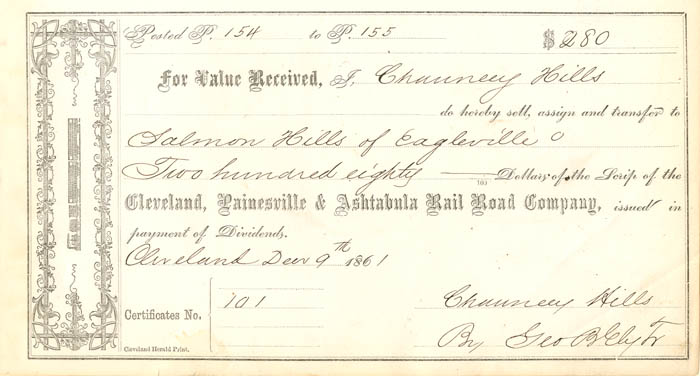 Posted P. 154 to P. 155 $280
For Value Received, I, Chauncey Hills
do hereby sell, assign and transfer to
Salmon Hills of Eagleville O
Two hundred eighty 100 Dollars of the Scrip of the
Cleveland, Painesville & Ashtabula Rail Road Company, issued in
payment of Dividends.
Cleveland Decr 9th 1861
Certificates No. 101
Chauncey Hills
By Geo B Ely Tr
Cleveland Herald Print.